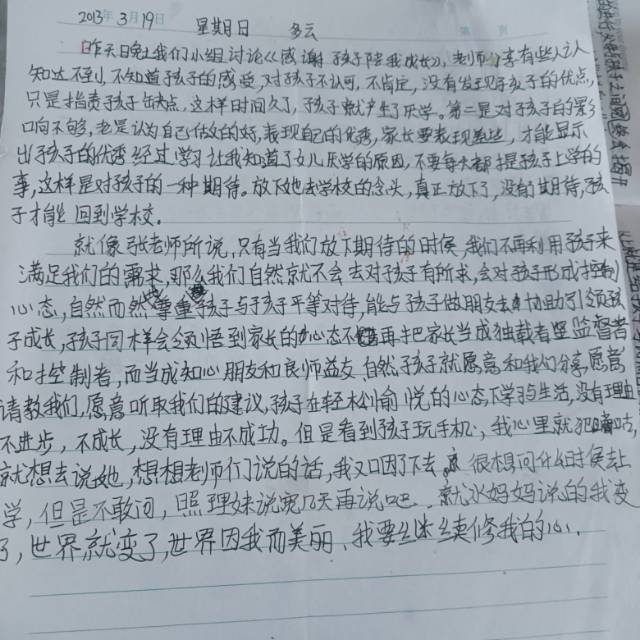 2023年3月19日 星期日 多云
昨天日晚上我们小组讨论《感谢孩子陪我成长》,老师分享有些人认
知达不到,不知道孩子的感受,对孩子不认可,不肯定,没有发现孩子的优点,
只是指责孩子缺点,这样时间久了,孩子就产生了厌学。第二是对孩子的影
响不够,老是认为自己做的好,表现自己的优秀,家长要表现差些,才能显示
出孩子的优秀 经过学习让我知道了女儿厌学的原因,不要每都提孩子上学的
事,这样是对孩子的一种期待。放下她去学校的念头,真正放下了,没有期待,孩
子才能回到学校。
就像张老师所说,只有当我们放下期待的时候,我们不再利用孩子来
满足我们的需求,那么我们自然就不会去对孩子有所求,会对孩子形成控制
心态,自然而然尊重孩子与孩子平等对待,能与孩子做朋友去协助引领孩
子成长,孩子同样会领悟到家长的心态不再把家长当成独裁者 监督者
和控制者,而当成知心朋友和良师益友 自然孩子就愿意和我们分享,愿意
请教我们,愿意听取我们的建议,孩子在轻松愉悦的心态下学习生活,没有理由
不进步,不成长,没有理由不成功。但是看到孩子玩手机,我心里就犯嘀咕,
就想去说她,想想老师们说的话,我又口因了下去,很想问什么时候去上
学,但是不敢问,照理妹说宽几天再说吧,就冰妈妈说的我变
了,世界就变了,世界因我而美丽、我要继续修我的心.